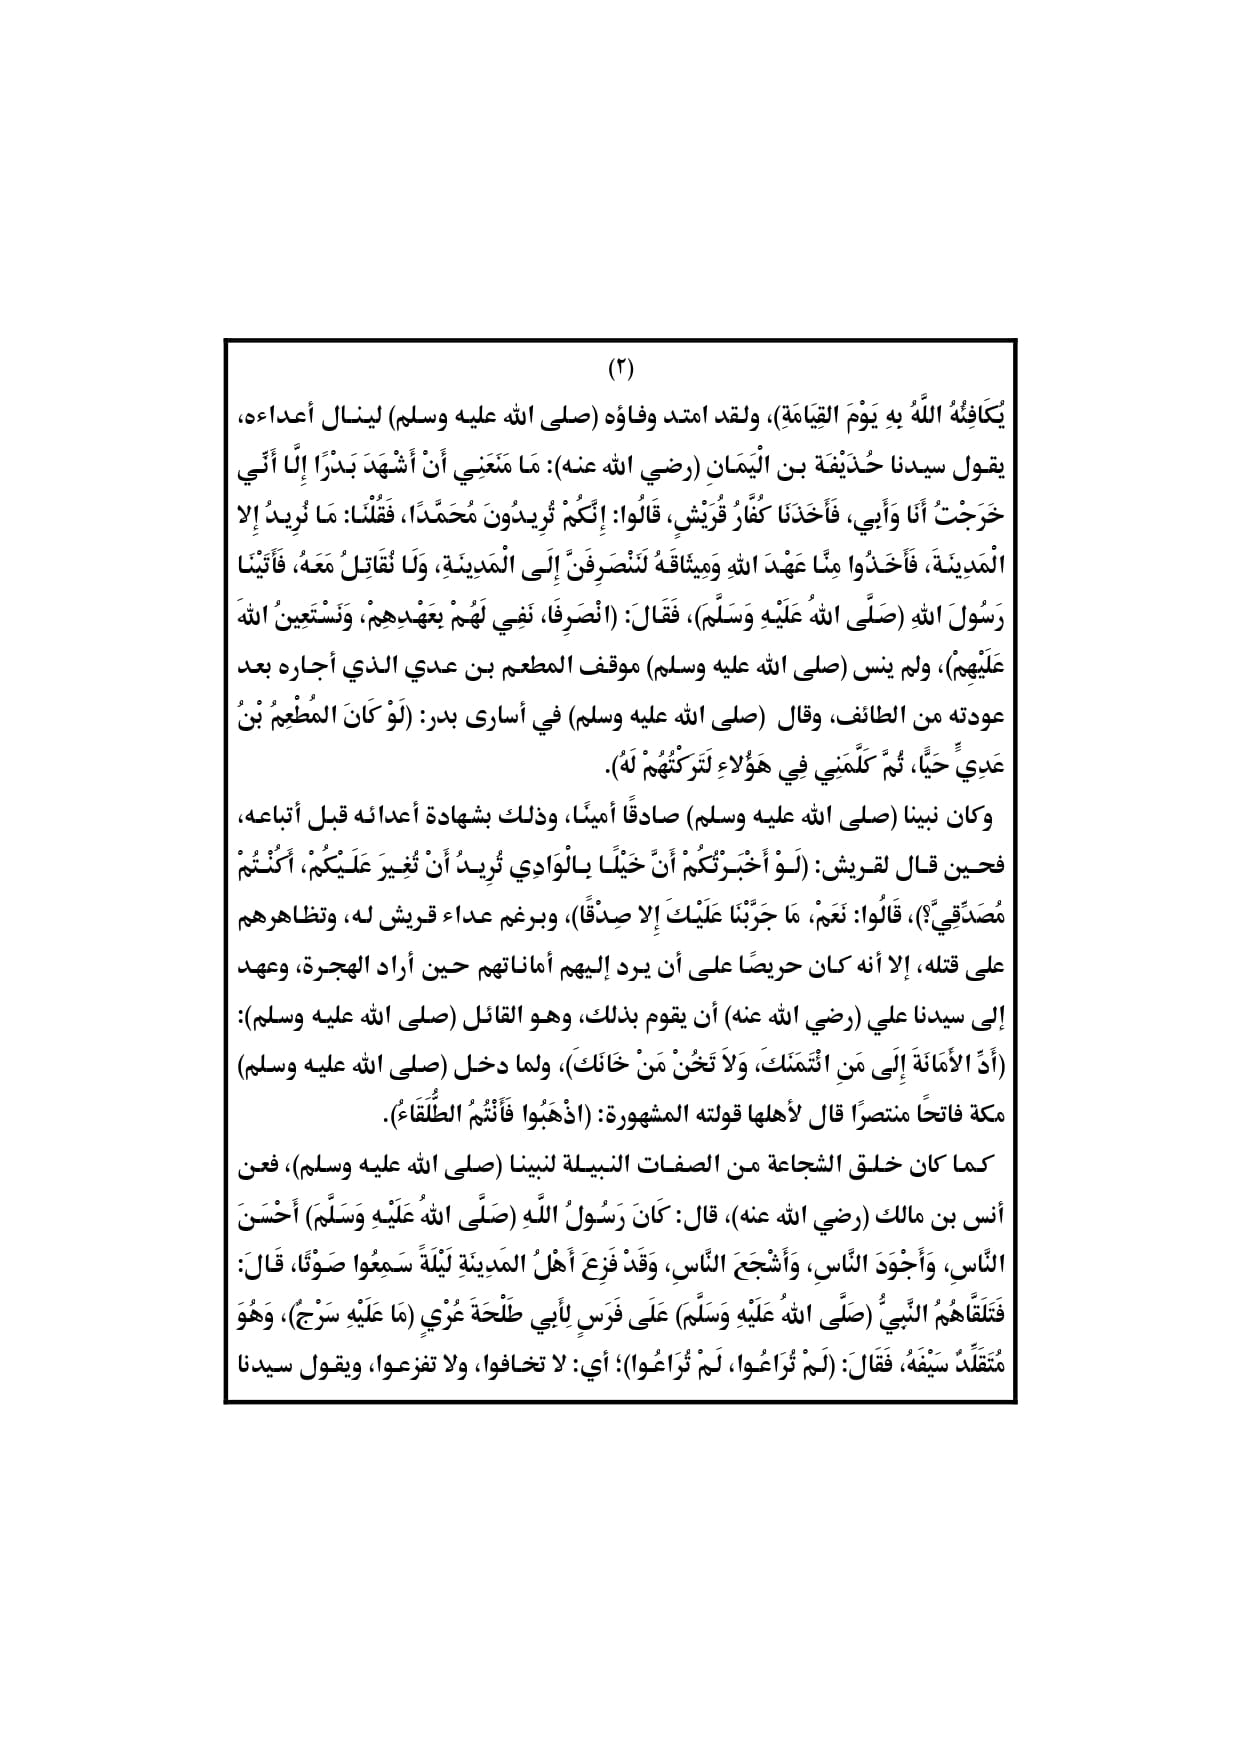 (٢)
يُكَافِئُهُ اللَّهُ بِهِ يَوْمَ القِيَامَةِ)، ولقد امتد وفاؤه (صلى الله عليه وسلم) لينال أعداءه،
يقول سيدنا حُذَيْفَة بن الْيَمَانِ (رضي الله عنه): مَا مَنَعَنِي أَنْ أَشْهَدَ بَدْرًا إِلَّا أَنِّي
خَرَجْتُ أَنَا وَأَبِي، فَأَخَذَنَا كُفَّارُ قُرَيْشٍ، قَالُوا: إِنَّكُمْ تُرِيدُونَ مُحَمَّدًا، فَقُلْنَا: مَا نُرِيدُ إِلا
الْمَدِينَةَ، فَأَخَذُوا مِنَّا عَهْدَ اللهِ وَمِيثَاقَهُ لَنَنْصَرِفَنَّ إِلَى الْمَدِينَةِ، وَلَا نُقَاتِلُ مَعَهُ، فَأَتَيْنَا
رَسُولَ اللهِ (صَلَّى اللهُ عَلَيْهِ وَسَلَّمَ)، فَقَالَ: (انْصَرِفَا، نَفِي لَهُمْ بِعَهْدِهِمْ، وَنَسْتَعِينُ اللهَ
عَلَيْهِمْ)، ولم ينس (صلى الله عليه وسلم) موقف المطعم بن عدي الذي أجاره بعد
عودته من الطائف، وقال (صلى الله عليه وسلم) في أسارى بدر: (لَوْ كَانَ المُطْعِمُ بْنُ
عَدِيٍّ حَيًّا، ثُمَّ كَلَّمَنِي فِي هَؤُلاءِ لَتَرَكْتُهُمْ لَهُ).
وكان نبينا (صلى الله عليه وسلم) صادقًا أمينًا، وذلك بشهادة أعدائه قبل أتباعه،
فحين قال لقريش: (لَوْ أَخْبَرْتُكُمْ أَنَّ خَيْلًا بِالْوَادِي تُرِيدُ أَنْ تُغِيرَ عَلَيْكُمْ، أَكُنْتُمْ
مُصَدِّقِيَّ؟)، قَالُوا: نَعَمْ، مَا جَرَّبْنَا عَلَيْكَ إِلا صِدْقًا)، وبرغم عداء قريش له، وتظاهرهم
على قتله، إلا أنه كان حريصًا على أن يرد إليهم أماناتهم حين أراد الهجرة، وعهد
إلى سيدنا علي (رضي الله عنه) أن يقوم بذلك، وهو القائل (صلى الله عليه وسلم):
(أَدِّ الأَمَانَةَ إِلَى مَنِ ائْتَمَنَكَ، وَلاَ تَخُنْ مَنْ خَانَكَ)، ولما دخل (صلى الله عليه وسلم)
مكة فاتحًا منتصرًا قال لأهلها قولته المشهورة: (اذْهَبُوا فَأَنْتُمُ الطُّلَقَاءُ).
كما كان خلق الشجاعة من الصفات النبيلة لنبينا (صلى الله عليه وسلم)، فعن
أنس بن مالك (رضي الله عنه)، قال: كَانَ رَسُولُ اللَّهِ (صَلَّى اللهُ عَلَيْهِ وَسَلَّمَ) أَحْسَنَ
النَّاسِ، وَأَجْوَدَ النَّاسِ، وَأَشْجَعَ النَّاسِ، وَقَدْ فَزِعَ أَهْلُ المَدِينَةِ لَيْلَةً سَمِعُوا صَوْتًا، قَالَ:
فَتَلَقَّاهُمُ النَّبِيُّ (صَلَّى اللهُ عَلَيْهِ وَسَلَّمَ) عَلَى فَرَسٍ لِأَبِي طَلْحَةَ عُرْيٍ (مَا عَلَيْهِ سَرْجٌ)، وَهُوَ
مُتَقَلِّدٌ سَيْفَهُ، فَقَالَ: (لَمْ تُرَاعُوا، لَمْ تُرَاعُوا)؛ أي: لا تخافوا، ولا تفزعوا، ويقول سيدنا